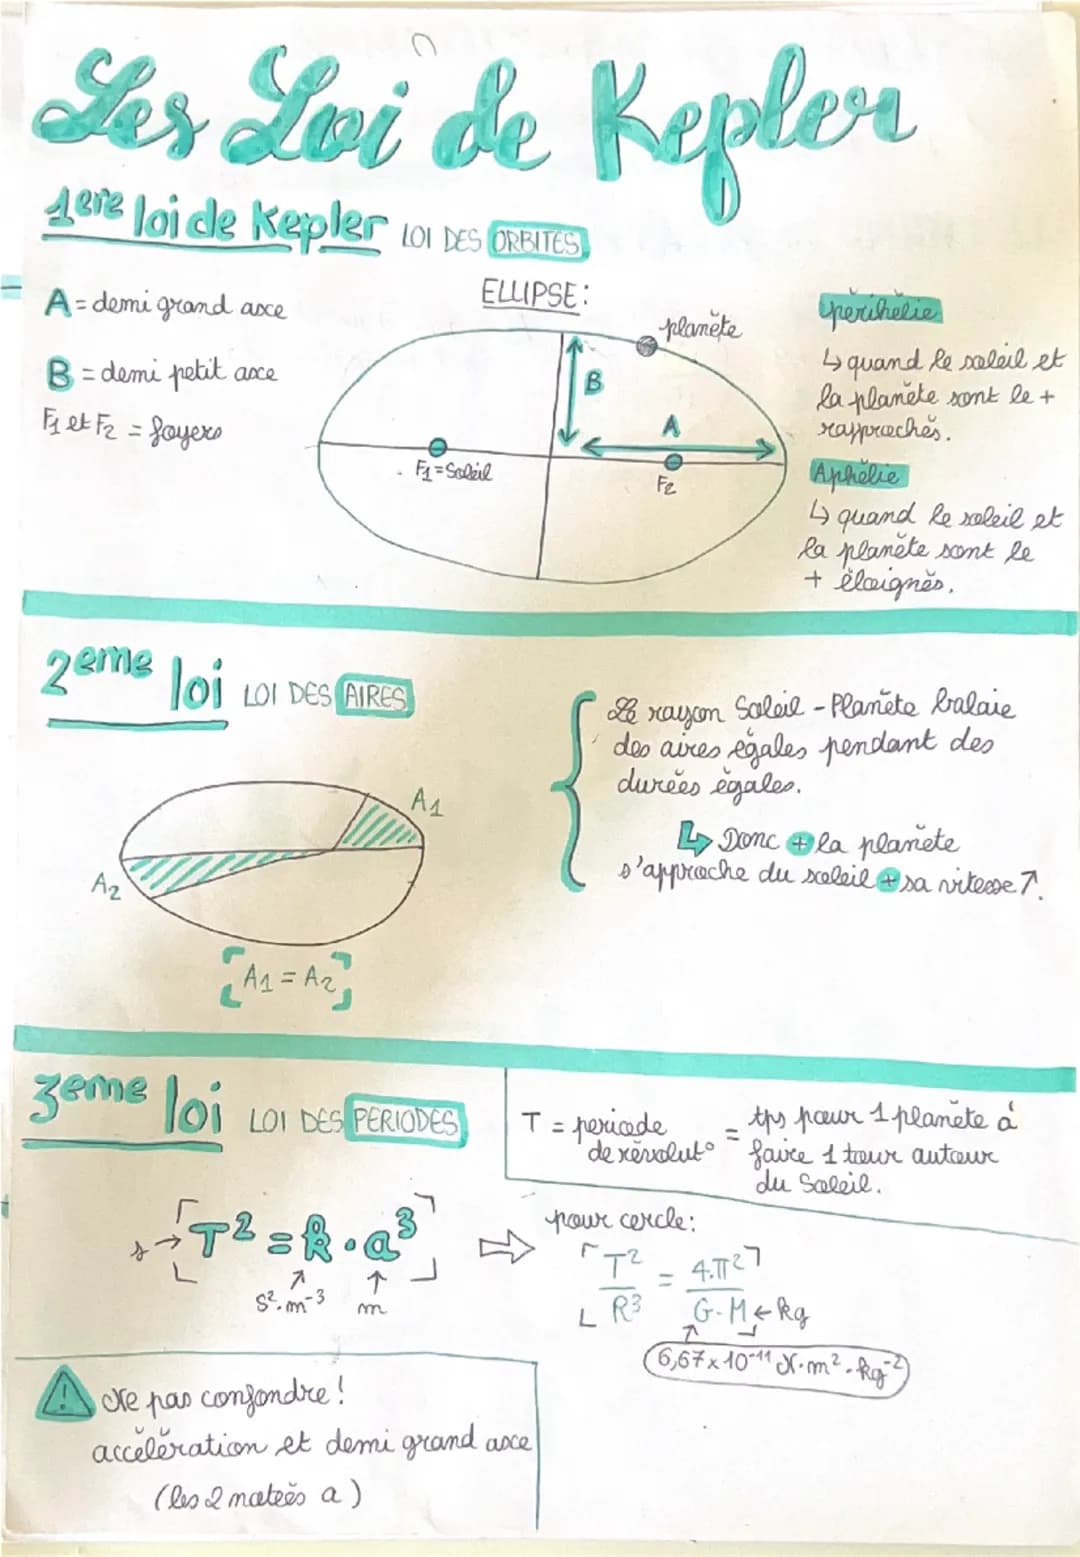 Les Loi de Kepler
1ere loi de Kepler LOI DES ORBITES
A = demi grand axe
B = demi petit axe
F1 et F2 = foyers
ELLIPSE :
planète
B
A
F1 = Soleil
F2
périhélie
↳ quand le soleil et
la planète sont le +
rapprochés.
Aphélie
↳ quand le soleil et
la planète sont le
+ éloignés.
2eme loi LOI DES AIRES
A1
A2
A1 = A2
Le rayon Soleil - Planète balaie
des aires égales pendant des
durées égales.
↳ Donc + la planète
s'approche du soleil + sa vitesse ↗.
3eme loi LOI DES PERIODES
T = periode de révolut° = tps pour 1 planète à
faire 1 tour autour
du Soleil.
s → T² = k . a³
s².m⁻³ m
⇒ pour cercle :
T²/R³ = 4.π²/G.M ← kg
6,67 x 10⁻¹¹ N.m².kg⁻²
! Ne pas confondre !
accélération et demi grand axe
(les 2 notés a)